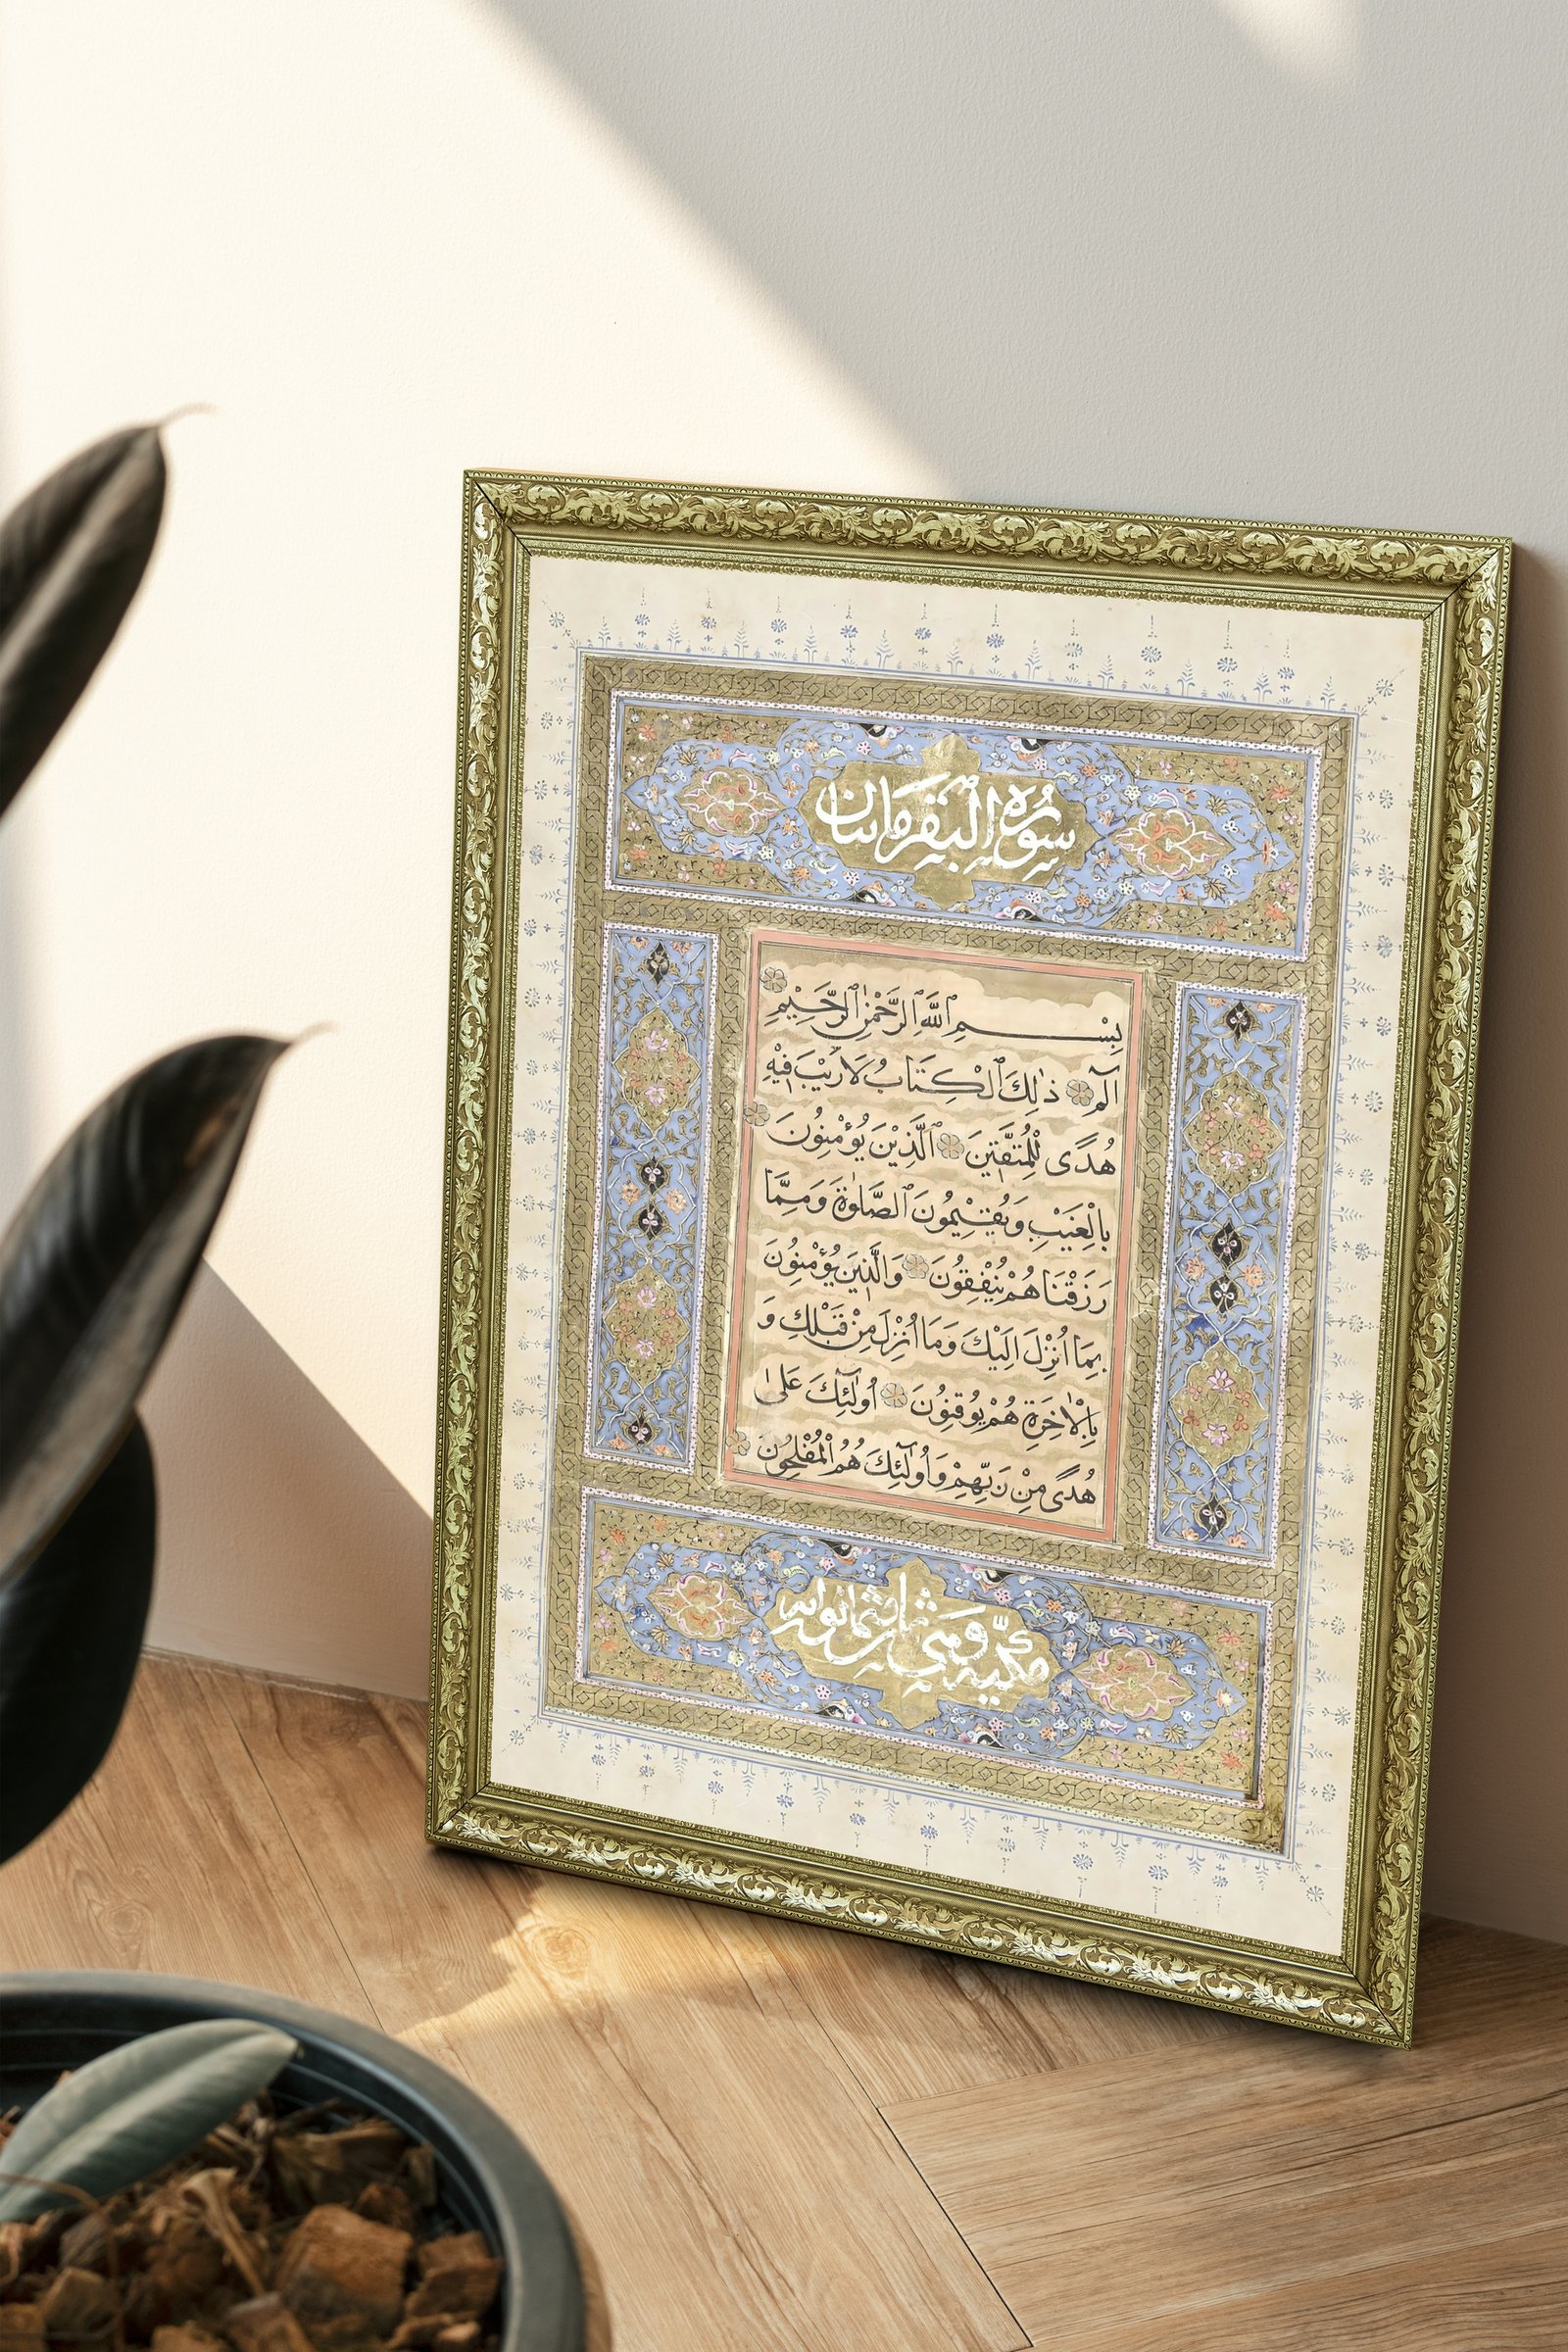 سورة البقرة مائتان
بِسْمِ ٱللَّهِ ٱلرَّحْمٰنِ ٱلرَّحِيْمِ
الٓمٓ ذٰلِكَ ٱلْكِتَابُ لَا رَيْبَ فِيْهِ
هُدًى لِلْمُتَّقِيْنَ ٱلَّذِيْنَ يُؤْمِنُوْنَ
بِالْغَيْبِ وَيُقِيْمُوْنَ ٱلصَّلٰوةَ وَمِمَّا
رَزَقْنَاهُمْ يُنْفِقُوْنَ وَالَّذِيْنَ يُؤْمِنُوْنَ
بِمَا اُنْزِلَ اِلَيْكَ وَمَا اُنْزِلَ مِنْ قَبْلِكَ وَ
بِالْاٰخِرَةِ هُمْ يُوْقِنُوْنَ اُولٰٓئِكَ عَلٰى
هُدًى مِنْ رَبِّهِمْ وَاُولٰٓئِكَ هُمُ ٱلْمُفْلِحُوْنَ
وست وثمانون آية